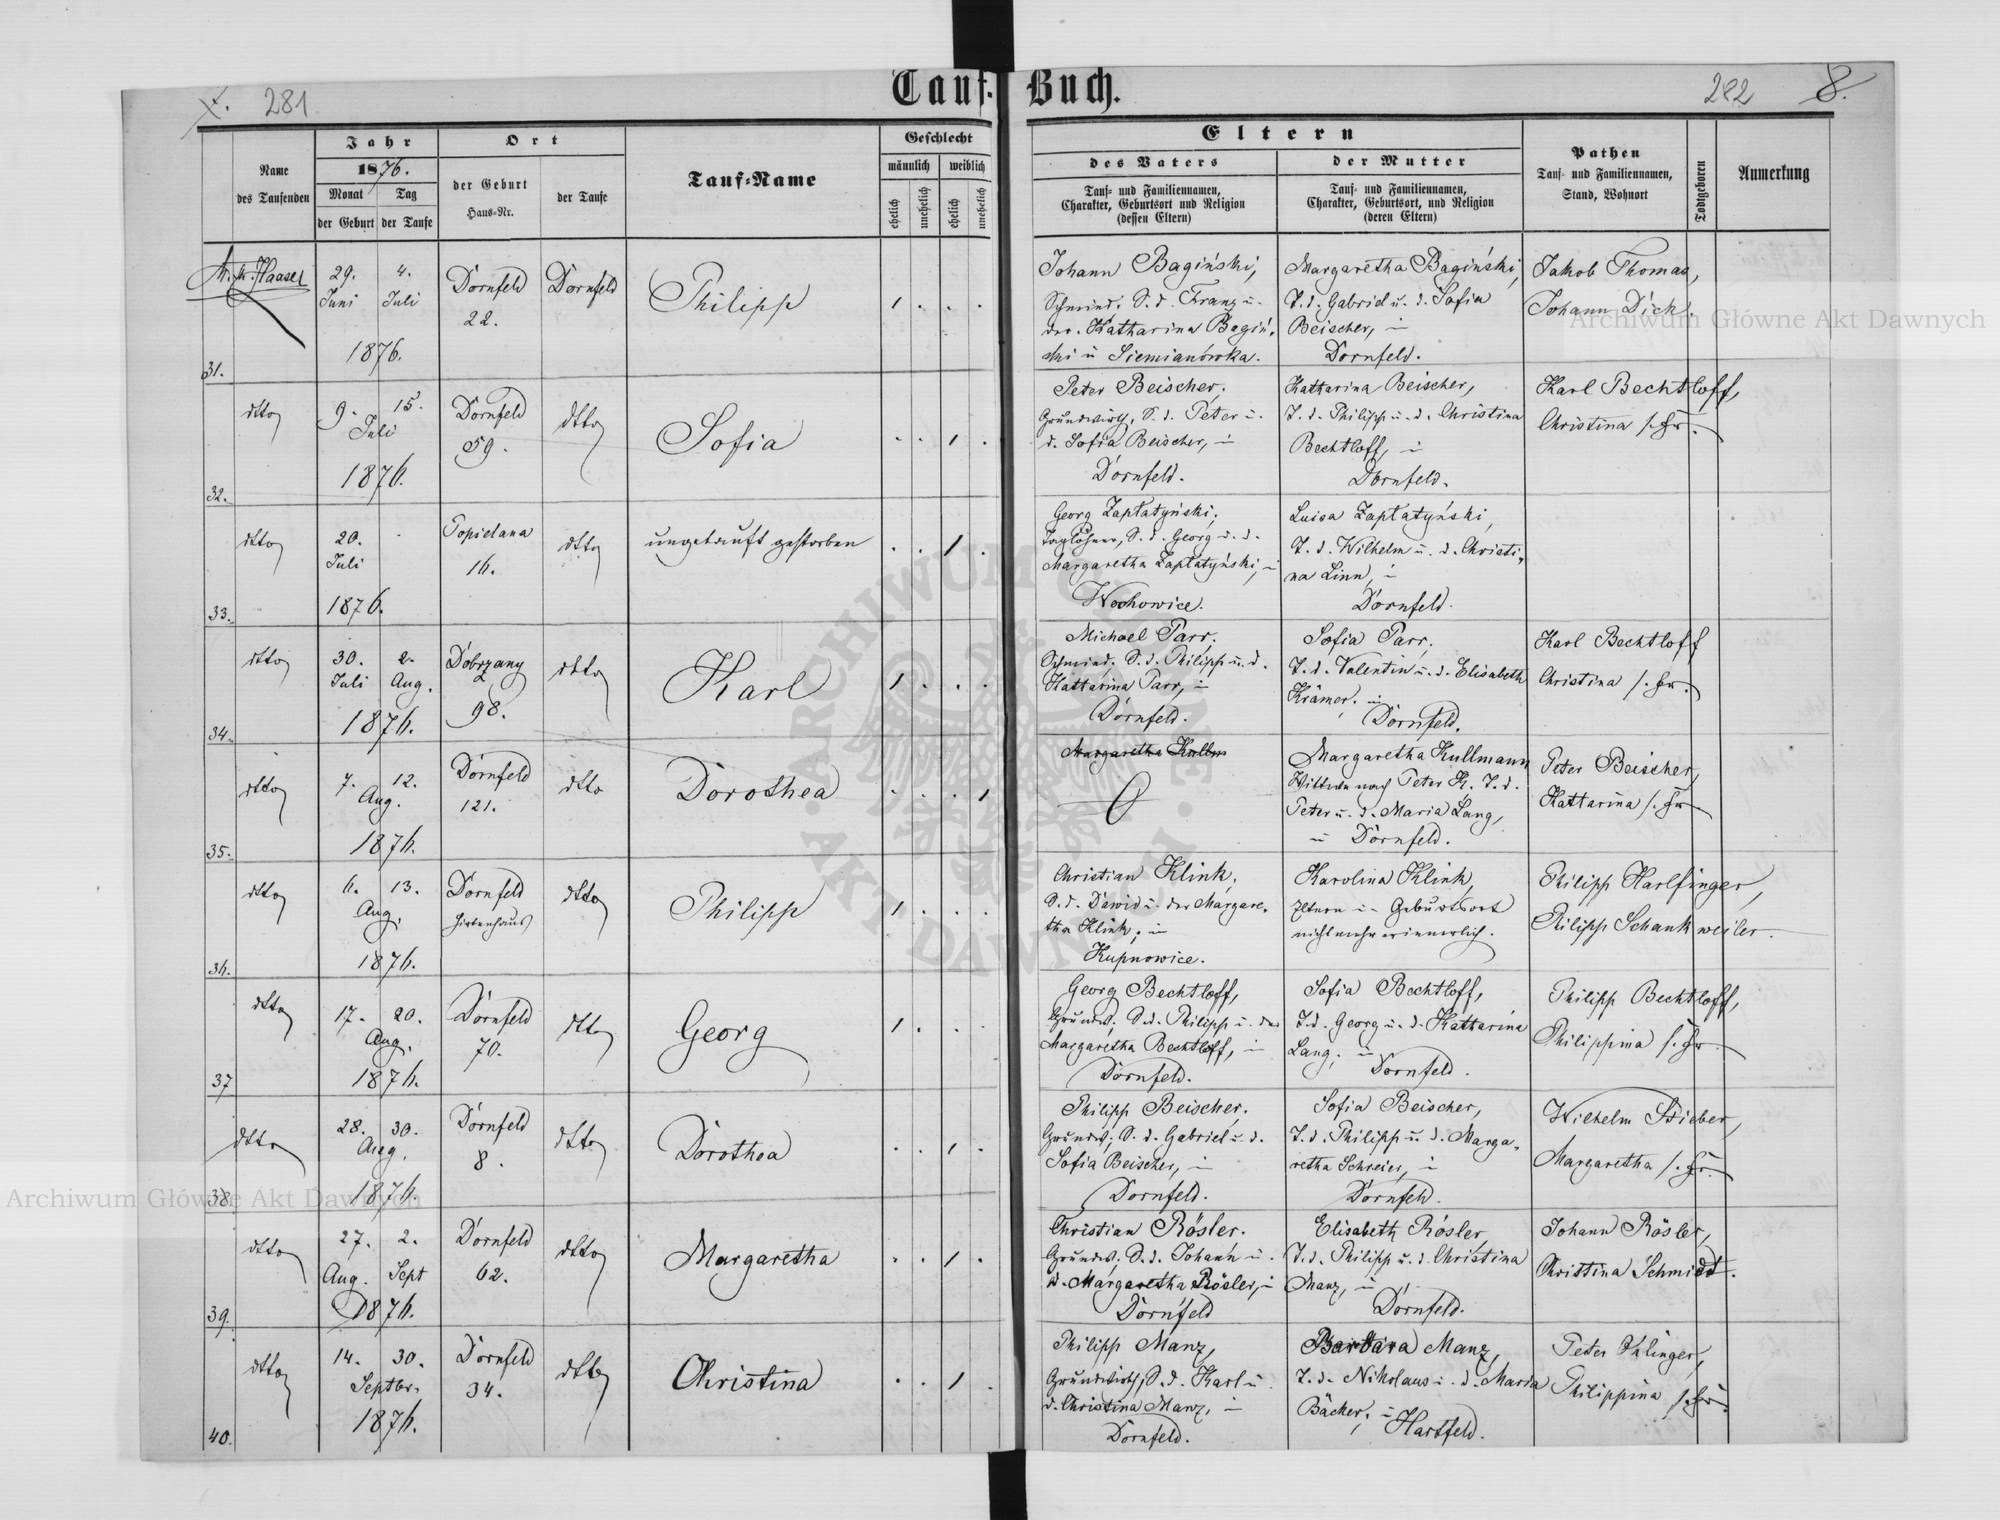 Tauf-Buch.
281
282
8.
Name
des Taufenden
Jahr
1876.
Monat
der Geburt
Tag
der Taufe
Ort
der Geburt
Haus-Nr.
der Taufe
Tauf-Name
Geschlecht
männlich
weiblich
ehelich
unehelich
ehelich
unehelich
Eltern
des Vaters
Tauf- und Familiennamen,
Charakter, Geburtsort und Religion
(dessen Eltern)
der Mutter
Tauf- und Familiennamen,
Charakter, Geburtsort, und Religion
(deren Eltern)
Pathen
Tauf- und Familiennamen,
Stand, Wohnort
Todtgeboren
Anmerkung
31.
Haase
29. 4.
Juni Juli
1876.
Dornfeld
22.
Dornfeld
Philipp
Johann Bagiński,
Schmied, S. d. Franz u.
der Katharina Bagiń-
ski in Siemianówka.
Margaretha Bagiński,
T. d. Gabriel u. d. Sofia
Beischer, in
Dornfeld.
Jakob Thomas,
Johann Dich.
32.
dtto
9. 15.
Juli
1876.
Dornfeld
59.
dtto
Sofia
Peter Beischer,
Grundwirth, S. d. Peter u.
d. Sofia Beischer, in
Dornfeld.
Katharina Beischer,
T. d. Philipp u. d. Christina
Bechtloff, in
Dornfeld.
Karl Bechtloff,
Christina s. Fr.
33.
dtto
20.
Juli
1876.
Popielana
16.
dtto
ungetauft gestorben
Georg Zaplatyński,
Taglöhner, S. d. Georg u. d.
Margaretha Zaplatyński, in
Wochowice.
Luisa Zaplatyński,
T. d. Wilhelm u. d. Christi-
na Linn, in
Dornfeld.
34.
dtto
30. 2.
Juli Aug.
1876.
Dobrzany
98.
dtto
Karl
Michael Parr,
Schmied, S. d. Philipp u. d.
Kattarina Parr, in
Dornfeld.
Sofia Parr,
T. d. Valentin u. d. Elisabeth
Krämer, in
Dornfeld.
Karl Bechtloff
Christina s. Fr.
35.
dtto
7. 12.
Aug.
1876.
Dornfeld
121.
dtto
Dorothea
Margaretha Kullm
Margaretha Kullmann
Wittwe nach Peter K. T. d.
Peter u. d. Maria Lang,
in Dornfeld.
Peter Beischer,
Kattarina s. Fr.
36.
dtto
6. 13.
Aug.
1876.
Dornfeld
Hirtenhaus
dtto
Philipp
Christian Klink,
S. d. Dawid u. der Margare-
tha Klink, in
Kupnowice.
Karolina Klink,
Eltern u. Geburtsort
nicht mehr erinnerlich.
Philipp Harlfinger,
Philipp Schankweiler.
37
dtto
17. 20.
Aug.
1876.
Dornfeld
70.
dtto
Georg
Georg Bechtloff,
Grundw. S. d. Philipp u. der
Margaretha Bechtloff, in
Dornfeld.
Sofia Bechtloff,
T. d. Georg u. d. Kattarina
Lang, in
Dornfeld.
Philipp Bechtloff,
Philippina s. Fr.
38
dtto
28. 30.
Aug.
1876.
Dornfeld
8.
dtto
Dorothea
Philipp Beischer,
Grundw. S. d. Gabriel u. d.
Sofia Beischer, in
Dornfeld.
Sofia Beischer,
T. d. Philipp u. d. Marga-
retha Schreier, in
Dornfeld.
Wilhelm Stieber,
Margaretha s. Fr.
39.
dtto
27. 2.
Aug. Sept
1876.
Dornfeld
62.
dtto
Margaretha
Christian Rösler.
Grundw. S. d. Johann u.
d. Margaretha Rösler, in
Dornfeld
Elisabeth Rösler,
T. d. Philipp u. d. Christina
Manz, in
Dornfeld.
Johann Rösler,
Christina Schmidt.
40.
dtto
14. 30.
Septbr.
1876.
Dornfeld
34.
dtto
Christina
Philipp Manz,
Grundwirth, S. d. Karl u.
d. Christina Manz, in
Dornfeld.
Barbara Manz,
T. d. Nikolaus u. d. Maria
Bäcker, in
Hartfeld.
Peter Uhlinger,
Philippina s. Fr.
Archiwum Główne Akt Dawnych
Archiwum Główne Akt Dawnych